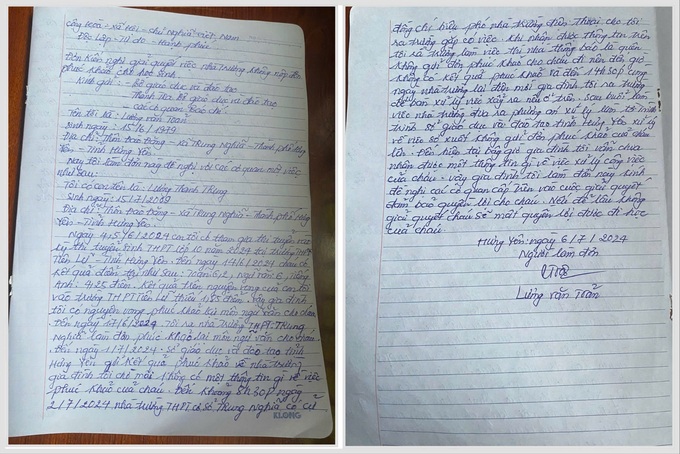 Cộng hòa - xã hội - chủ nghĩa việt nam
Độc lập - Tự do - Hạnh phúc
Đơn kiến nghị giải quyết việc nhà trường không nộp đơn
phúc khảo cho học sinh.
Kính gửi: - Bộ giáo dục và đào tạo
- Thanh tra bộ giáo dục và đào tạo
- các cơ quan báo chí.
Tên tôi là: Lương văn Toản
Sinh ngày: 15/6/1979
Địa chỉ: Thôn Đào Đặng - xã Trung Nghĩa - Thành phố Hưng
Yên - Tỉnh Hưng Yên.
Nay tôi làm đơn này đề nghị với các cơ quan một việc
như sau:
Tôi có con tên là: Lương Thanh Trung
Sinh ngày: 15/7/2009
Địa chỉ: Thôn Đào Đặng - xã Trung Nghĩa - Thành phố Hưng
Yên - Tỉnh Hưng Yên.
Ngày 4+5/6/2024 con tôi có tham gia thi tuyển vào
kỳ thi tuyển sinh THPT lớp 10 năm 2024 tại trường THPT
Tiên Lữ - Tỉnh Hưng Yên. Đến ngày 17/6/2024 cháu có
kết quả điểm thi như sau: Toán 6,2, Ngữ văn: 6, Tiếng
Anh: 4.25 điểm. Kết quả trên nguyện vọng của con tôi
vào trường THPT Tiên Lữ thiếu điểm. Vậy gia đình
tôi có nguyện vọng phúc khảo lại môn ngữ văn cho cháu.
Đến ngày 17/6/2024. Tôi ra nhà trường THPT. Trung
Nghĩa làm đơn phúc khảo lại môn ngữ văn cho cháu.
Đến ngày 1/7/2024 - sở giáo dục và đào tạo tỉnh
Hưng Yên gửi kết quả phúc khảo về nhà trường
gia đình tôi chờ mãi không có một thông tin gì về việc
phúc khảo của cháu. Đến khoảng 8h30p ngày
2/7/2024 nhà trường THPT cơ sở Trung Nghĩa có cử
KLONG
đồng chí hiệu phó nhà trường điện thoại cho tôi
ra trường gặp có việc. Khi nhận được thông tin trên
tôi ra trường làm việc thì nhà trường báo là quên
không gửi đơn phúc khảo cho cháu đi nên đến giờ
không có kết quả phúc khảo và đến 14h30p cùng
ngày nhà trường lại đến mời gia đình tôi ra trường
để bàn xử lý việc xảy ra nêu ở trên. Sau buổi làm
việc nhà trường đưa ra phương án xử lý làm tờ trình
trình sở giáo dục và đào tạo tỉnh Hưng Yên xử lý
về việc sơ xuất không gửi đơn phúc khảo của cháu
lên. Đến hiện tại bây giờ gia đình tôi vẫn chưa
nhận được một thông tin gì về việc xử lý công việc
của cháu - vậy gia đình tôi làm đơn này kính
đề nghị các cơ quan cấp trên vào cuộc giải quyết
đảm bảo quyền lợi cho cháu. Nếu để lâu không
giải quyết cháu sẽ mất quyền lợi được đi học
của cháu.
Hưng Yên: ngày 6/7/2024
Người làm đơn
Lương văn Toản